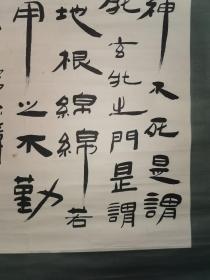 神不死是謂
牝玄牝之門是謂
地根綿綿若
用之不勤